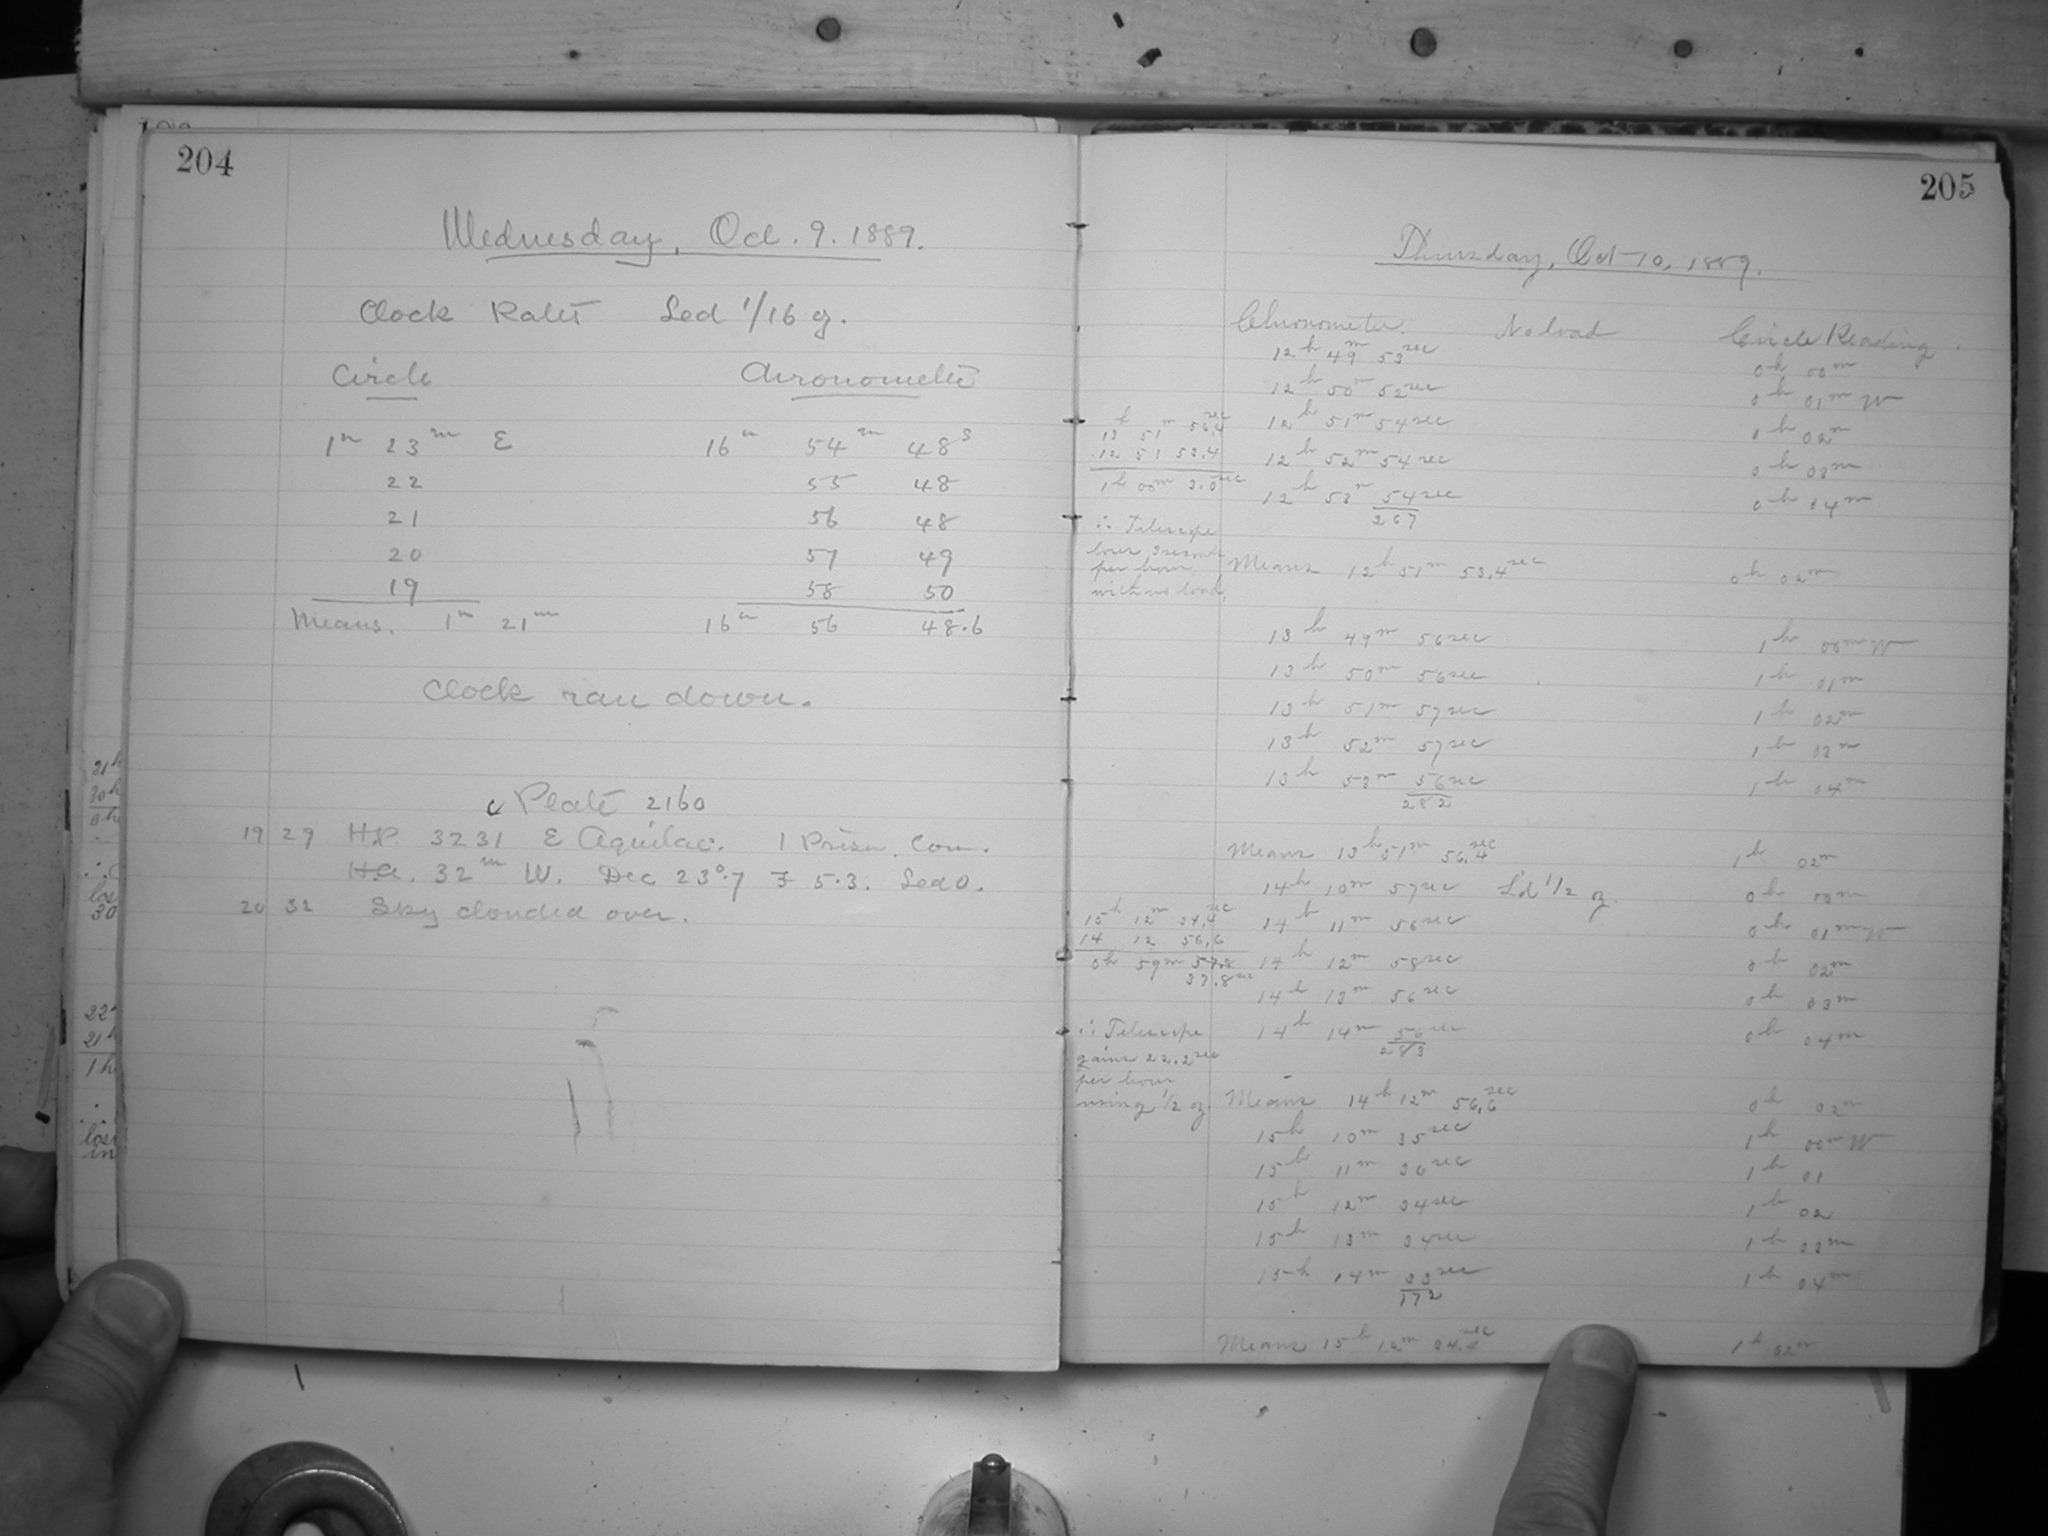 204
Wednesday, Oct. 9. 1889.
Clock Rates Led 1/16 oz.
Circle Chronometer
1h 23m E 16h 54m 48s
22 55 48
21 56 48
20 57 49
19 58 50
Means. 1h 21m 16h 56 48.6
Clock ran down.
Plate 2160
19 29 H.P. 3231 E Aquilae. 1 Prism. Com.
H.A. 32m W. Dec 23°.7 F 5.3. Led 0.
20 32 Sky clouded over.
205
Thursday, Oct 10, 1889.
Chronometer. No load Circle Reading
12h 49m 53sec 0h 00m
12h 50m 52sec 0h 01m W
12h 51m 54sec 0h 02m
12h 52m 54sec 0h 03m
12h 53m 54sec 0h 04m
267
13h 51m 56.4sec
12 51 53.4
1h 00m 3.0sec
∴ Telescope
loses 3 seconds
per hour
with no load.
Means 12h 51m 53.4sec 0h 02m
13h 49m 56sec 1h 00m W
13h 50m 56sec 1h 01m
13h 51m 57sec 1h 02m
13h 52m 57sec 1h 03m
13h 53m 56sec 1h 04m
282
Means 13h 51m 56.4sec 1h 02m
14h 10m 57sec L'd 1/2 oz. 0h 00m
14h 11m 56sec 0h 01m W
14h 12m 58sec 0h 02m
14h 13m 56sec 0h 03m
14h 14m 56sec 0h 04m
283
15h 12m 34.4sec
14 12 56.6
0h 59m
37.8sec
∴ Telescope
gains 22.2sec
per hour
using 1/2 oz.
Means 14h 12m 56.6sec 0h 02m
15h 10m 35sec 1h 00m W
15h 11m 36sec 1h 01
15h 12m 34sec 1h 02
15h 13m 34sec 1h 03m
15h 14m 33sec 1h 04m
172
Means 15h 12m 34.4sec 1h 02m